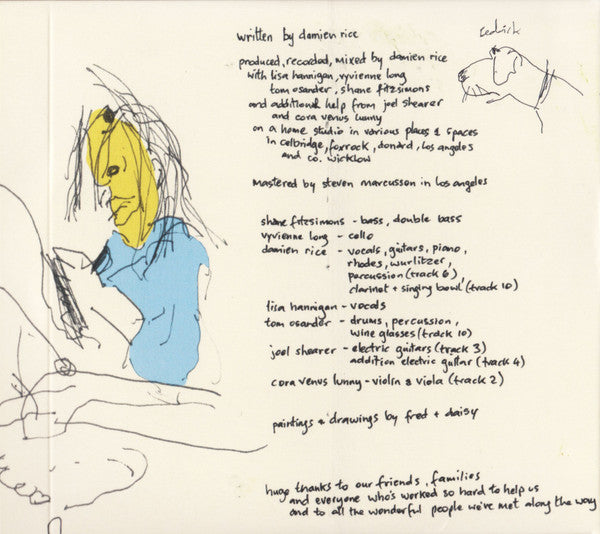 cedrick
written by damien rice
produced, recorded, mixed by damien rice
with lisa hannigan, vyvienne long
tom osander, shane fitzsimons
and additional help from joel shearer
and cora venus lunny
on a home studio in various places & spaces
in celbridge, foxrock, donard, los angeles
and co. wicklow
mastered by steven marcusson in los angeles
shane fitzsimons - bass, double bass
vyvienne long - cello
damien rice - vocals, guitars, piano,
rhodes, wurlitzer,
percussion (track 6),
clarinet + singing bowl (track 10)
lisa hannigan - vocals
tom osander - drums, percussion,
wine glasses (track 10)
joel shearer - electric guitars (track 3)
addition electric guitar (track 4)
cora venus lunny - violin & viola (track 2)
paintings & drawings by fred + daisy
huge thanks to our friends, families
and everyone who's worked so hard to help us
and to all the wonderful people we've met along the way